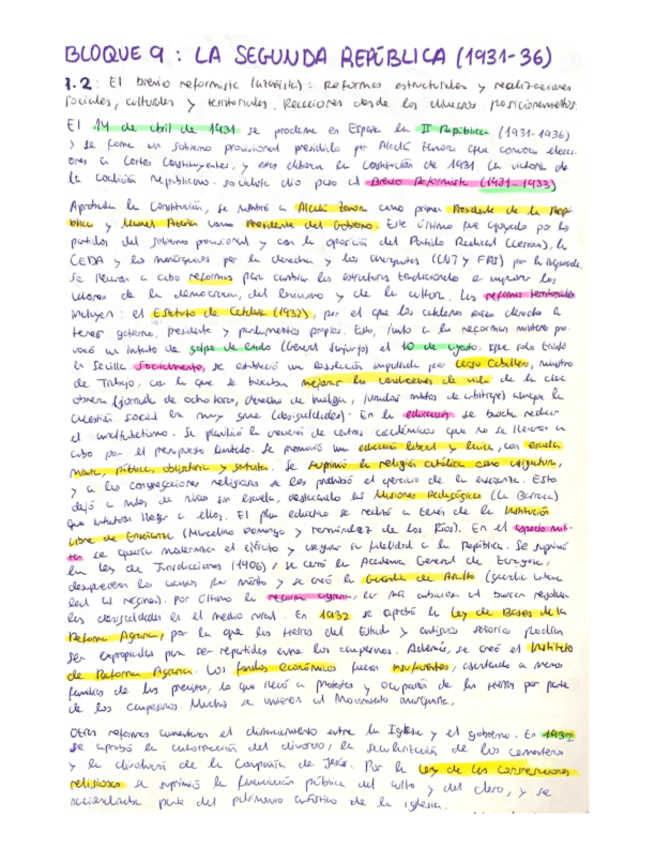 BLOQUE 9: LA SEGUNDA REPÚBLICA (1931-36)
1.2: El bienio reformista (azañista): Reformas estructurales y realizaciones
sociales, culturales y territoriales. Reacciones desde los diversos posicionamientos.
El 14 de abril de 1931 se proclama en España la II República (1931-1936)
y se forma un gobierno provisional presidido por Alcalá Zamora que convoca elecci-
ones a Cortes Constituyentes, y estas elaboran la Constitución de 1931. La victoria de
la coalición republicano-socialista dio paso al Bienio Reformista (1931-1933)
Aprobada la Constitución, se nombró a Alcalá Zamora como primer Presidente de la Repú-
blica y Manuel Azaña como Presidente del Gobierno. Este último fue apoyado por los
partidos del gobierno provisional y con la oposición del Partido Radical (Lerroux), la
CEDA y los monárquicos por la derecha y los anarquistas (CNT y FAI) por la izquierda.
Se llevaron a cabo reformas para cambiar las estructuras tradicionales e imponer los
valores de la democracia, del laicismo y de la cultura. Las reformas territoriales
incluyen: el Estatuto de Cataluña (1932), por el que los catalanes tenían derecho a
tener gobierno, presidente y parlamento propios. Esto, junto a las reformas militares pro-
vocó un intento de golpe de estado (General Sanjurjo) el 10 de agosto, que solo triunfó
en Sevilla. Socialmente, se estableció una legislación impulsada por Largo Caballero, ministro
de Trabajo, con la que se buscaba mejorar las condiciones de vida de la clase
obrera (jornada de ocho horas, derecho de huelga, jurados mixtos de arbitraje) aunque la
cuestión social era muy grave (desigualdades). En la educación se buscó reducir
el analfabetismo. Se planificó la creación de centros académicos que no se llevaron a
cabo por el presupuesto limitado. Se promovió una educación liberal y laica, con escuela
mixta, pública, obligatoria y gratuita. Se suprimió la religión católica como asignatura,
y a las congregaciones religiosas se les prohibió el ejercicio de la enseñanza. Esto
dejó a miles de niños sin escuela, destacando las Misiones Pedagógicas (La Barraca)
que intentaban llegar a ellos. El plan educativo se realizó a través de la Institución
Libre de Enseñanza (Marcelino Domingo y Fernández de los Ríos). En el espacio mili-
tar se quería modernizar el ejército y asegurar su fidelidad a la República. Se suprimió
la Ley de Jurisdicciones (1906), se cerró la Academia General de Zaragoza,
desaparecen los ascensos por mérito y se creó la Guardia de Asalto (guardia urbana
leal al régimen). Por último la reforma agraria, la más ambiciosa al buscar resolver
las desigualdades en el medio rural. En 1932 se aprobó la Ley de Bases de la
Reforma Agraria, por la que las tierras del Estado y antiguos señoríos podrían
ser expropiadas para ser repartidas entre los campesinos. Además, se creó el Instituto
de Reforma Agraria. Los fondos económicos fueron insuficientes, asentando a menos
familias de las previstas, lo que llevó a protestas y ocupación de las tierras por parte
de los campesinos. Muchos se unieron al Movimiento anarquista.
Otras reformas aumentaron el distanciamiento entre la Iglesia y el gobierno. En 1932
se aprobó la autorización del divorcio, la secularización de los cementerios
y la disolución de la Compañía de Jesús. Por la Ley de las Congregaciones
religiosas se suprimió la financiación pública del culto y del clero, y se
nacionalizaba parte del patrimonio artístico de la iglesia.